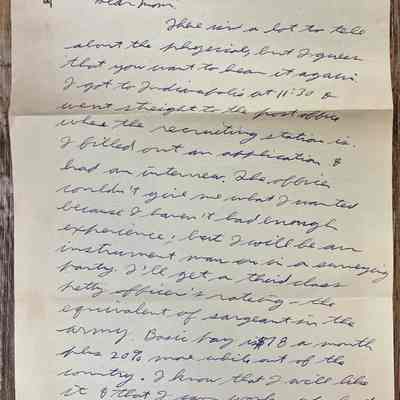 Dear Mom,
There isn't a lot to tell
about the physical, but I guess
that you want to hear it again.
I got to Indianapolis at 11:30 &
went straight to the post office
where the recruiting station is.
I filled out an application &
had an interview. The officer
couldn't give me what I wanted
because I haven't had enough
experience; but I will be an
instrument man on in a surveying
party. I'll get a third class
petty officer's rating - the
equivalent of sargeant in the
army. Basic pay is $78 a month
plus 20% more while out of the
country. I know that I will like
it & that I